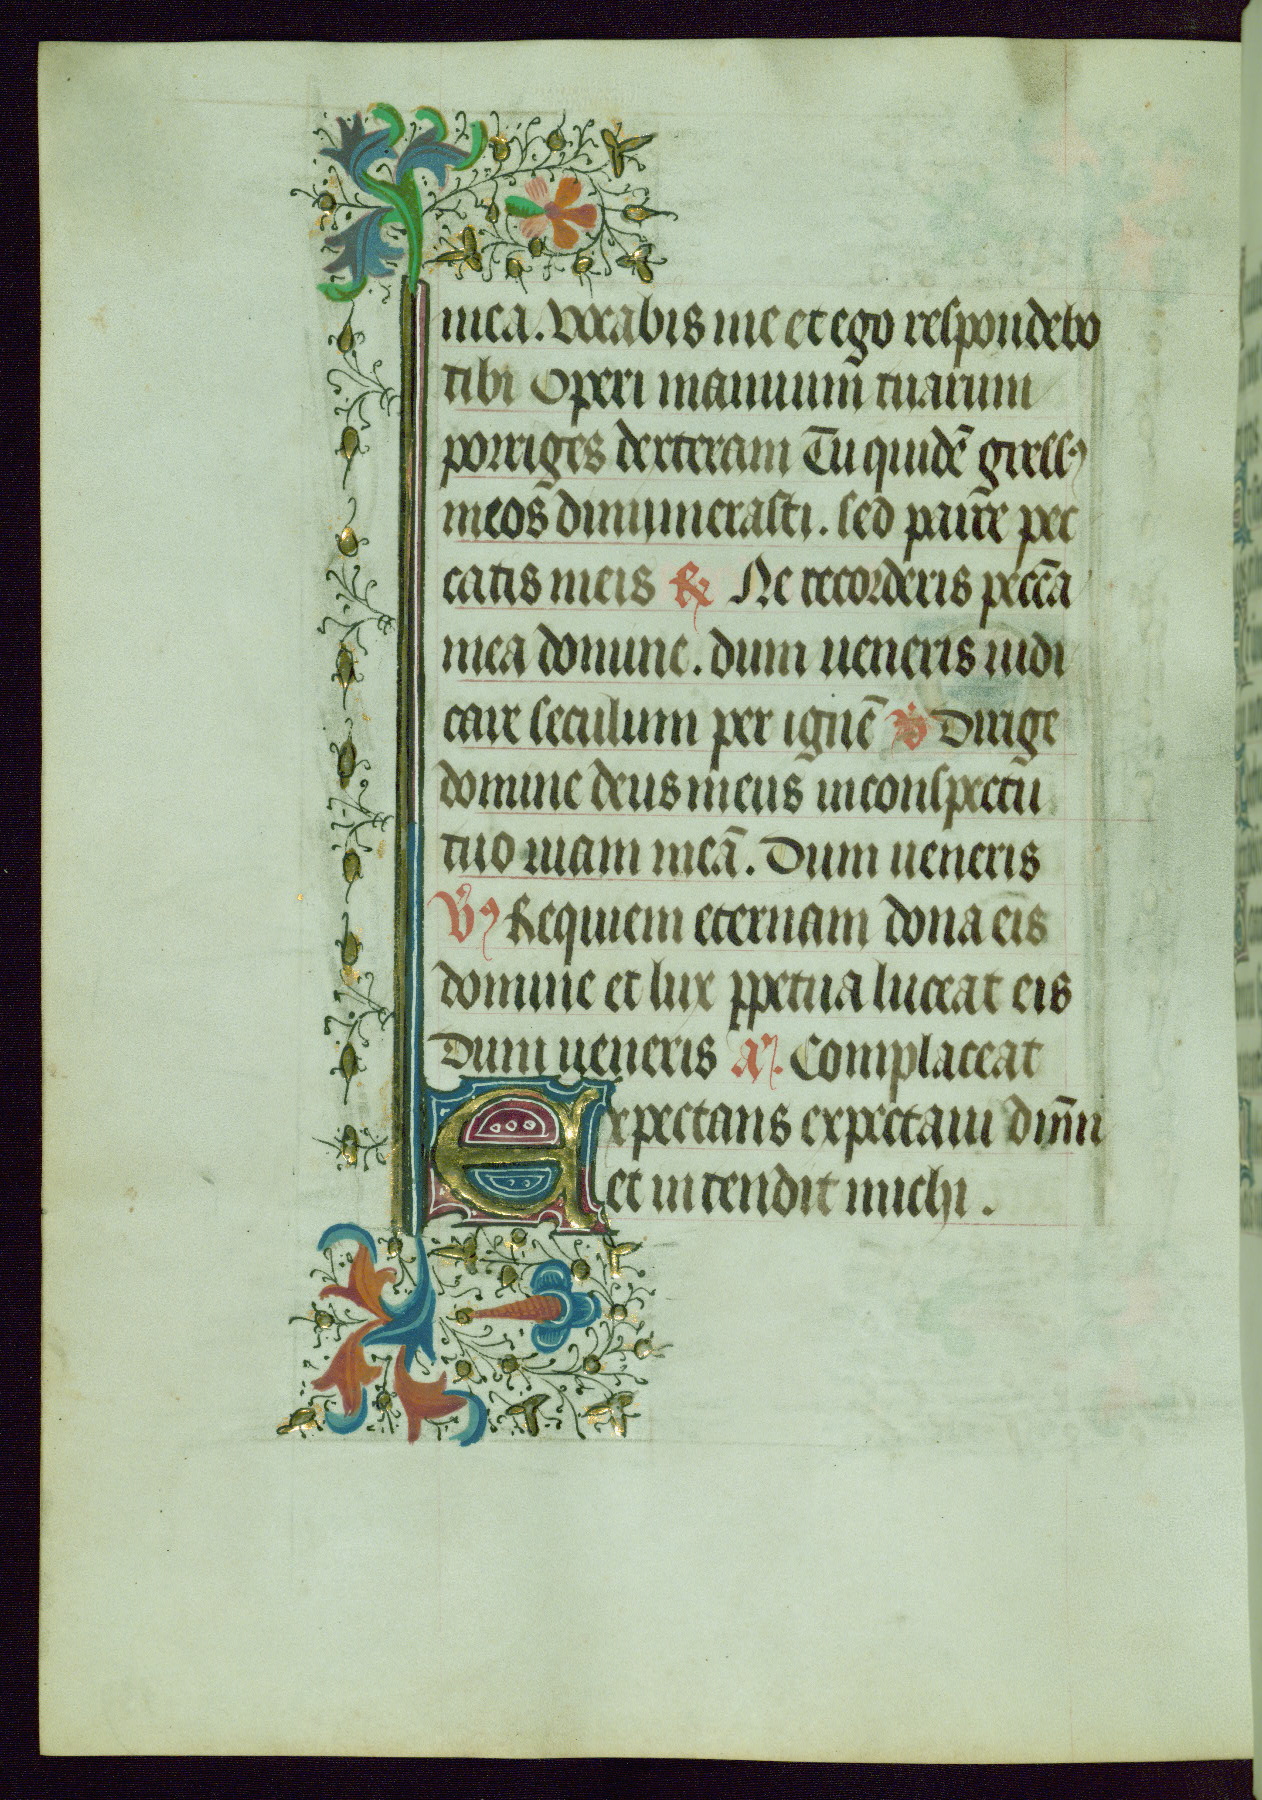 mea. vocabis me et ego respondebo
tibi Operi manuum̄ tuarum
porriges dexteram Tu quidē gressꝯ
meos dinumerasti. sed parce pec
catis meis ℟ Ne recorderis peccā
mea domine. dum ueneris iudi
care seculum per ignē ℣ Dirige
domine deus meus in conspectu
tuo uiam meā. Dum ueneris
℣ Requiem eternam dona eis
domine et lux ꝑpetua luceat eis
Dum ueneris a͞n. Complaceat
Expectans expectaui dm̄n
et intendit michi.